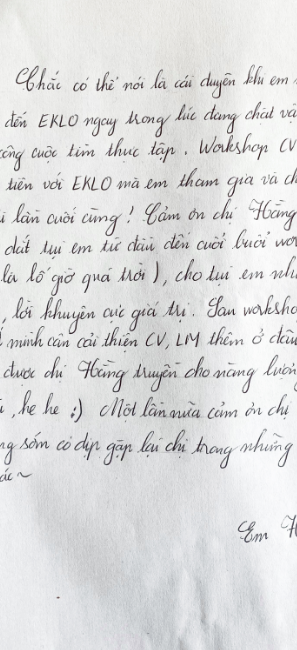 Chắc có thể nói là cái duyên khi em
đến EKLO ngay trong lúc đang chật vậ
công cuộc tìm thực tập. Workshop CV
tiên với EKLO mà em tham gia và ch
lần cuối cùng! Cảm ơn chị Hằng
dắt tụi em từ đầu đến cuối buổi wor
là lố giờ quá trời), cho tụi em nh
, lời khuyên cực giá trị. Sau worksho
mình cần cải thiện CV, LM thêm ở đâu
được chị Hằng truyền cho năng lượn
, he he :) Một lần nữa cảm ơn chị
ng sớm có dịp gặp lại chị trong những
ác ~
Em H